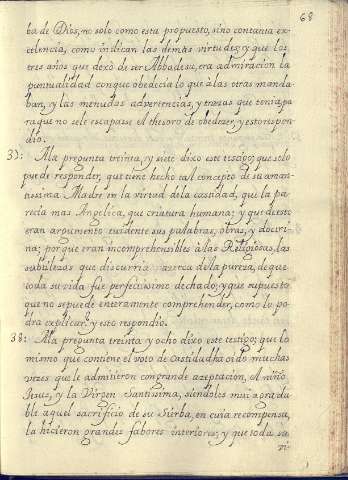 68
ba de Dios, no solo como esta propuesto, sino con tanta ex-
celencia, como indican las demas virtudes; y que los
tres años que dexò de ser Abbadesa, era admiracion la
puntualidad con que obedecia lo que à las otras manda-
ban, y las menudas advertencias, y trazas que tenia pa
ra que no se le escapasse el thesoro de obedezer, y esto respon-
dio.
37: A la pregunta treinta, y siete dixo este testigo; que solo
puede responder, que tiene hecho tal concepto de su aman-
tissima Madre en la virtud de la castidad, que la pa-
recia mas Angelica, que criatura humana; y que de esto
eran argumento evidente sus palabras, obras, y doctri-
na; porque eran incomprehensibles à las Religiosas, las
subtilezas que discurria azerca de la pureza, de que
toda su vida fue perfectissimo dechado; y que supuesto
que no se puede enteramente comprehender, como lo po-
dra explicar? y esto respondio.
38: A la pregunta treinta y ocho dixo este testigo; que lo
mismo que contiene el voto de Castidad ha oido muchas
vezes que le admitieron con grande azeptacion, el niño
Jesus, y la Virgen Santissima, siendoles mui agrada-
ble aquel sacrificio de su Sierba, en cuia recompensa,
la hicieron grandes fabores interiores; y que toda su
vi